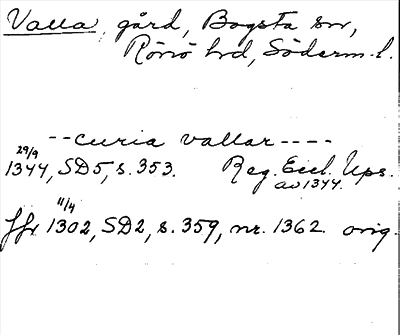 Valla, gård, Bogsta sn,
Rönö hd, Söderm. l.
-- curia vallar ----
29/9
1344, SD5, s. 353. Reg. Eccl. Ups.
av 1344.
11/4
Jfr 1302, SD2, s. 359, nr. 1362. orig.